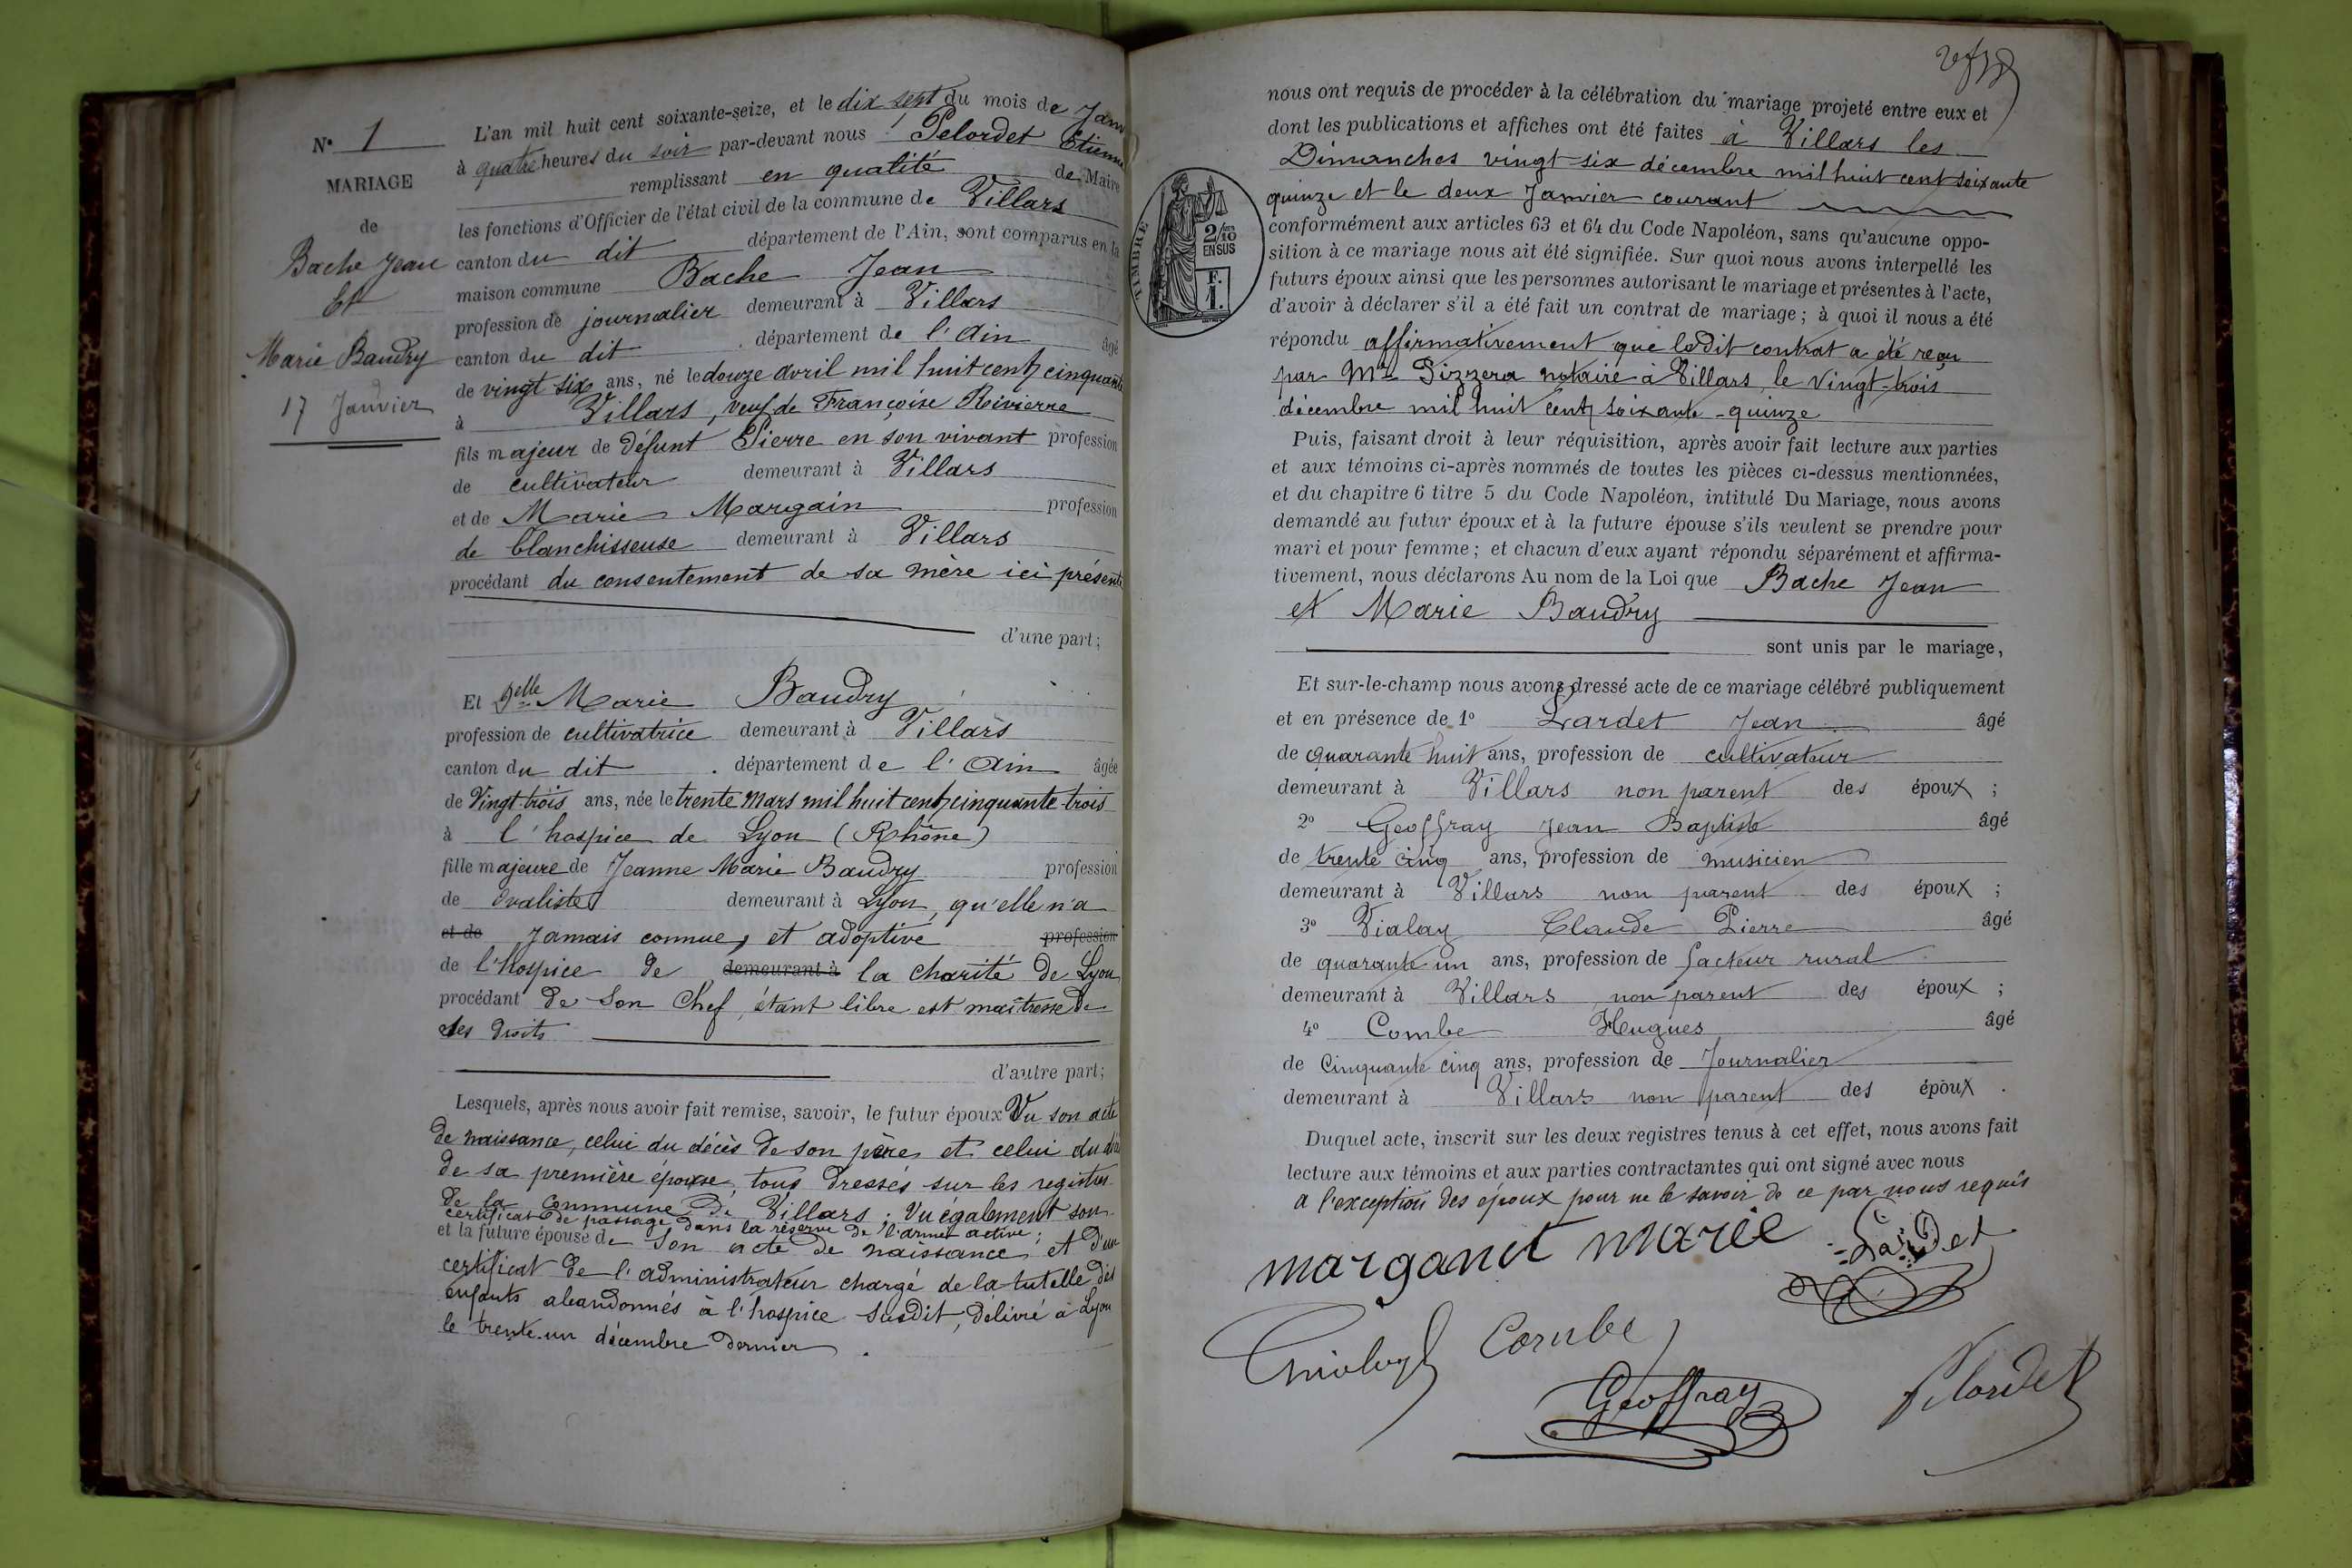 N° 1
MARIAGE
de
Bache Jean
Et
Marie Baudry
17 Janvier
L'an mil huit cent soixante-seize, et le dix sept du mois de Janv
à quatre heures du soir par-devant nous Pelordet Etienne
remplissant en qualité de Maire
les fonctions d'Officier de l'état civil de la commune de Villars
canton du dit département de l'Ain, sont comparus en la
maison commune Bache Jean
profession de journalier demeurant à Villars
canton du dit département de l'Ain âgé
de vingt six ans, né le douze avril mil huit cent cinquante
à Villars, veuf de Françoise Rivierre
fils majeur de défunt Pierre en son vivant profession
de cultivateur demeurant à Villars
et de Marie Margain profession
de blanchisseuse demeurant à Villars
procédant du consentement de sa mère ici présente
d'une part;
Et Delle Marie Baudry
profession de cultivatrice demeurant à Villars
canton du dit département de l'Ain âgée
de Vingt-trois ans, née le trente Mars mil huit cent cinquante trois
à l'hospice de Lyon (Rhône)
fille majeure de Jeanne Marie Baudry profession
de ovaliste demeurant à Lyon, qu'elle n'a
et de Jamais connue, et adoptive profession
de l'hospice de demeurant à la charité de Lyon
procédant de son Chef, étant libre est maîtresse de
ses droits
d'autre part;
Lesquels, après nous avoir fait remise, savoir, le futur époux Vu son acte
de naissance, celui du décès de son père, et celui du décès
de sa première épouse, tous dressés sur les registres
de la commune de Villars. Vu également son
certificat de passage dans la réserve de l'armée active;
et la future épouse de son acte de naissance et d'un
certificat de l'administrateur chargé de la tutelle des
enfants abandonnés à l'hospice susdit, délivré à Lyon
le trente-un décembre dernier.
TIMBRE
2/10
EN SUS
F.
1.
nous ont requis de procéder à la célébration du mariage projeté entre eux et
dont les publications et affiches ont été faites à Villars les
Dimanches vingt-six décembre mil huit cent soixante
quinze et le deux Janvier courant
conformément aux articles 63 et 64 du Code Napoléon, sans qu'aucune oppo-
sition à ce mariage nous ait été signifiée. Sur quoi nous avons interpellé les
futurs époux ainsi que les personnes autorisant le mariage et présentes à l'acte,
d'avoir à déclarer s'il a été fait un contrat de mariage; à quoi il nous a été
répondu affirmativement que ledit contrat a été reçu
par Me Pizzera notaire à Villars, le Vingt-trois
décembre mil huit cent soixante-quinze
Puis, faisant droit à leur réquisition, après avoir fait lecture aux parties
et aux témoins ci-après nommés de toutes les pièces ci-dessus mentionnées,
et du chapitre 6 titre 5 du Code Napoléon, intitulé Du Mariage, nous avons
demandé au futur époux et à la future épouse s'ils veulent se prendre pour
mari et pour femme; et chacun d'eux ayant répondu séparément et affirma-
tivement, nous déclarons Au nom de la Loi que Bache Jean
et Marie Baudry
sont unis par le mariage,
Et sur-le-champ nous avons dressé acte de ce mariage célébré publiquement
et en présence de 1° Lardet Jean âgé
de quarante huit ans, profession de cultivateur
demeurant à Villars non parent des époux;
2° Geoffray Jean Baptiste âgé
de trente cinq ans, profession de musicien
demeurant à Villars non parent des époux;
3° Vialay Claude Pierre âgé
de quarante un ans, profession de facteur rural
demeurant à Villars non parent des époux;
4° Combe Hugues âgé
de Cinquante cinq ans, profession de Journalier
demeurant à Villars non parent des époux.
Duquel acte, inscrit sur les deux registres tenus à cet effet, nous avons fait
lecture aux témoins et aux parties contractantes qui ont signé avec nous
a l'exception des époux pour ne le savoir de ce par nous requis
Lardet
Combe
Geoffray
Pelordet